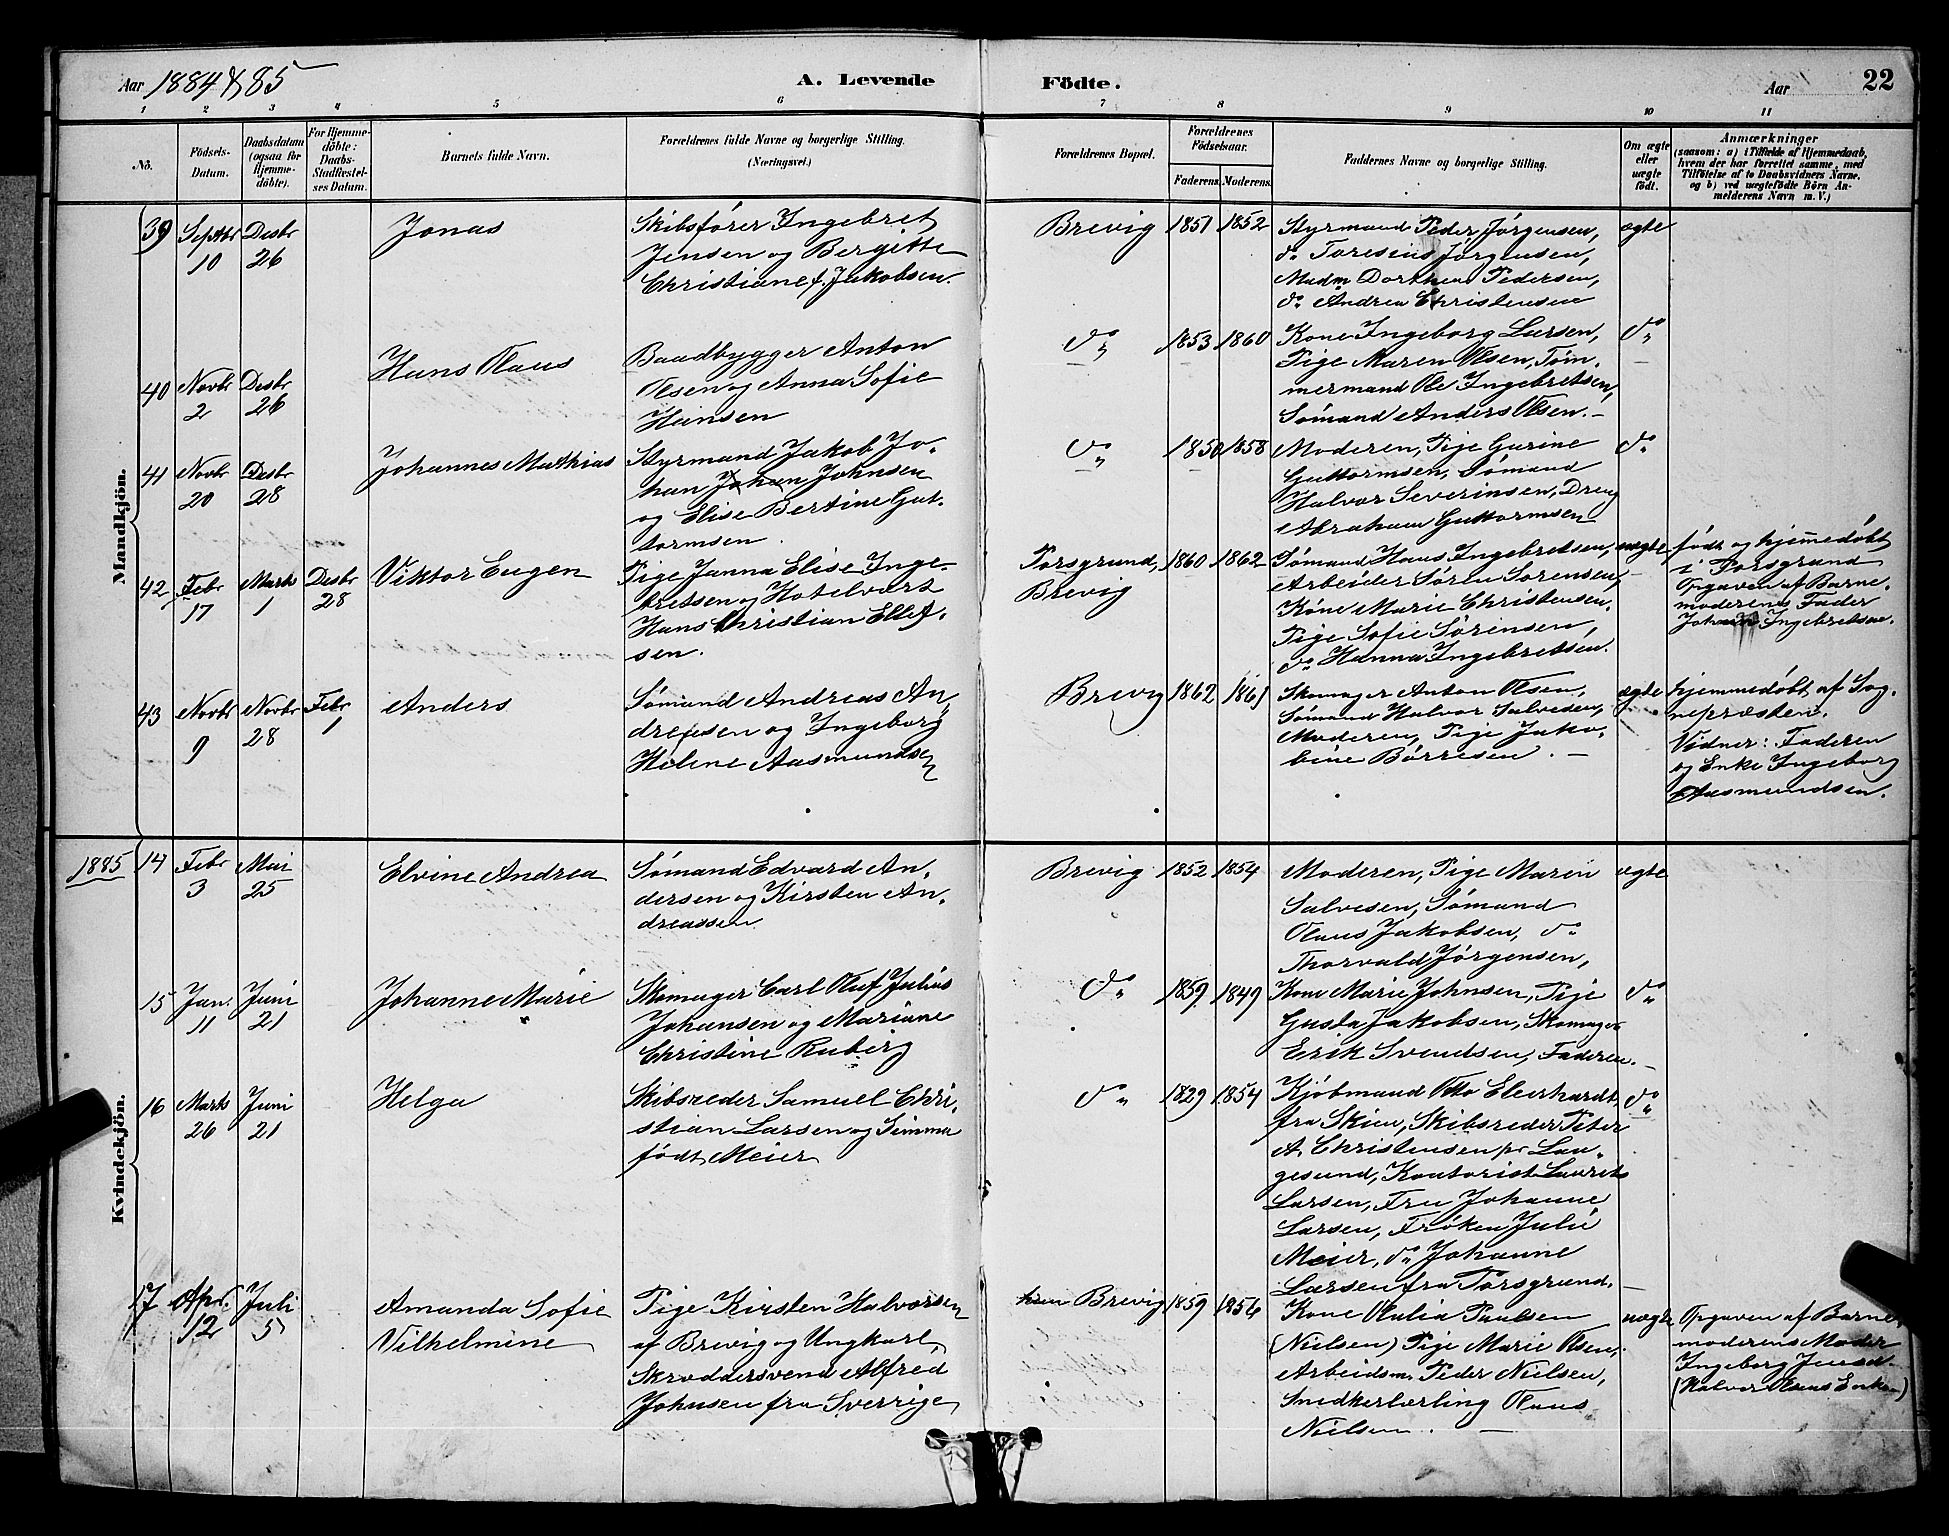 Aar 1884 & 85
A. Levende Födte.
Aar
22
1 2 3 4 5 6 7 8 9 10 11
No.
Födsels-Datum.
Daabsdatum (ogsaa for Hjemme-döbte).
For Hjemme-döbte: Daabs-Stadfæstel-ses Datum.
Barnets fulde Navn.
Forældrenes fulde Navne og borgerlige Stilling. (Næringsvei.)
Forældrenes Bopæl.
Forældrenes Födselsaar.
Faderens. Moderens.
Faddernes Navne og borgerlige Stilling.
Om ægte eller uægte födt.
Anmærkninger
(saasom: a) i Tilfælde af Hjemmedaab,
hvem der har forrettet samme, med
Tilföielse af to Daabsvidners Navne.
og b) ved uægtefödte Börn An-
melderens Navn m. V.)
Mandkjön.
39 Septbr 10 Desbr 26 Jonas
Skibsfører Ingebret
Jensen og Bergitte
Christiane f. Jakobsen.
Brevig 1851 1852
Styrmand Peder Jørgensen,
do Toresius Jørgensen,
Madm Dorthea Pedersen,
do Andrea Christensen
ægte
40 Novbr 2 Desbr 26 Hans Olaus
Baadbygger Anton
Olsen og Anna Sofie
Hansen
do 1853 1860
Kone Ingeborg Larsen,
Pige Maren Olsen, Tøm-
mermand Ole Ingebretsen,
Sømand Anders Olsen. –
do
41 Novbr 20 Desbr 28 Johannes Mathias
Styrmand Jakob Jo-
han Johan Johnsen
og Elise Bertine Gut-
tormsen
do 1850 1858
Moderen, Pige Gurine
Guttormsen, Sømand
Halvor Severinsen, Dreng
Abraham Guttormsen
do
42 Febr 17 Marts 1 Desbr 28 Viktor Eugen
Pige Janna Elise Inge-
bretsen og Hotelvært
Hans Christian Ellef-
sen.
Porsgrund, Brevig 1860 1862
Sømand Hans Ingebretsen,
Arbeider Søren Sørensen,
Kone Marie Christensen.
Pige Sofie Sørensen,
do Hanna Ingebretsen.
uægte
født og hjemmedøbt
i Porsgrund
Opgaven af Barne-
moderens Fader
Ingebretsen.
43 Novbr 9 Novbr 28 Febr 1 Anders
Sømand Andreas An-
dresen og Ingeborg
Helene Aasmundsen
Brevig 1862 1861
Skomager Anton Olsen,
Sømand Halvor Salvesen,
Moderen, Pige Jako-
bine Børresen. –
ægte
hjemmedøbt af Sog-
nepræsten.
Vidner: Faderen
og Enke Ingeborg
Aasmundsen.
Kvindekjön.
1885 14 Febr 3 Mai 25 Elvine Andrea
Sømand Edvard An-
dersen og Kirsten An-
dreassen.
Brevig 1852 1854
Moderen, Pige Maren
Salvesen, Sømand
Olaus Jakobsen, do
Thorvald Jørgensen,
ægte
15 Jan. 11 Juni 21 Johanne Marie
Skomager Carl Oluf Julius
Johansen og Mariane
Christine Ruberg
do 1859 1849
Kone Marie Johnsen, Pige
Gusta Jakobsen, Skomager
Erik Svendsen, Faderen. –
do
16 Marts 26 Juni 21 Helga
Skibsreder Samuel Chri-
stian Larsen og Simma
født Meier
do 1829 1854
Kjøbmand Otto Eberhardt,
fra Skien, Skibsreder Peter
A. Christensen pr Lan-
gesund, Kontorist Laurits
Larsen, Fru Johanne
Larsen, Frøken Julie
Meier, do Johanne
Larsen fra Porsgrund. –
do
17 Apr. 12 Juli 5 Amanda Sofie
Vilhelmine
Pige Kirsten Halvorsen
af Brevig og Ungkarl,
Skræddersvend Alfred
Johnsen fra Sverrige
hun Brevig 1859 1856
Kone Olalia Paulsen
(Nielsen) Pige Marie Olsen,
Arbeidsm. Peder Nielsen,
Snedkerlærling Olaus
Nielsen. –
uægte
Opgaven af Barne-
moderens Moder
Ingeborg
(Halvor Olsens Enke)